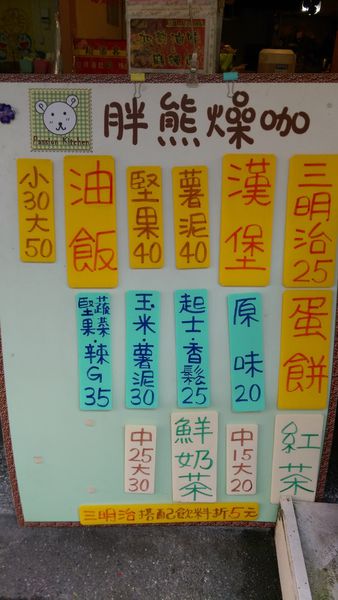 胖熊燥咖
Passion Kitchen
三明治25
漢堡
薯泥40
堅果40
油飯
小30大50
蛋餅
原味20
起士·香鬆25
玉米·薯泥30
蔬菜堅果·辣G35
紅茶
中15大20
鮮奶茶
中25大30
三明治搭配飲料折5元